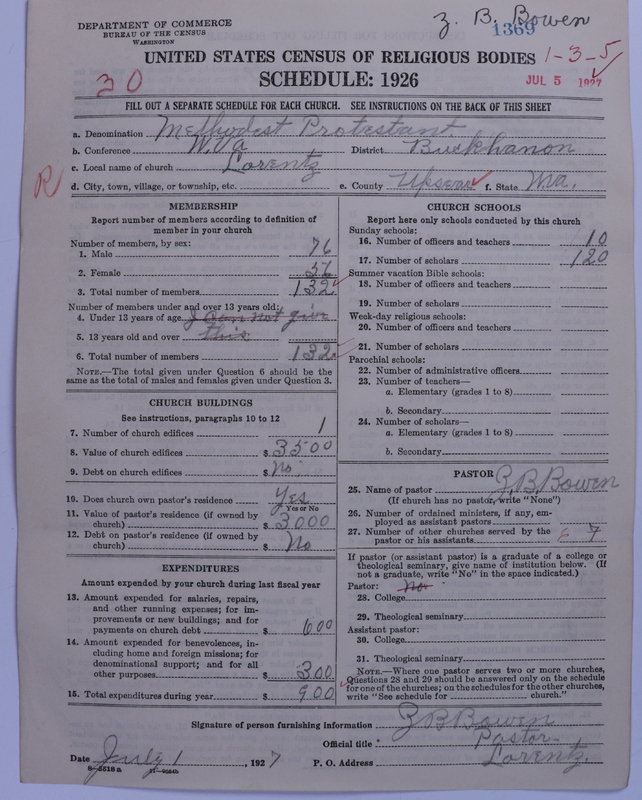 DEPARTMENT OF COMMERCE
BUREAU OF THE CENSUS
WASHINGTON
Z. B. Bowen
1369
UNITED STATES CENSUS OF RELIGIOUS BODIES
1-3-5
30
SCHEDULE: 1926
JUL 5 1927
FILL OUT A SEPARATE SCHEDULE FOR EACH CHURCH. SEE INSTRUCTIONS ON THE BACK OF THIS SHEET
a. Denomination Methodest Protestant
b. Conference W. Va District Buckhanon
c. Local name of church Lorentz
R
d. City, town, village, or township, etc. e. County Upseur f. State W.Va.
MEMBERSHIP
Report number of members according to definition of
member in your church
Number of members, by sex:
1. Male 76
2. Female 56
3. Total number of members 132
Number of members under and over 13 years old:
4. Under 13 years of age I can not give
5. 13 years old and over this
6. Total number of members 132
NOTE.—The total given under Question 6 should be
the same as the total of males and females given under Question 3.
CHURCH BUILDINGS
See instructions, paragraphs 10 to 12
7. Number of church edifices 1
8. Value of church edifices $ 3500
9. Debt on church edifices $ No
10. Does church own pastor's residence Yes
Yes or No
11. Value of pastor's residence (if owned by
church) $ 3000
12. Debt on pastor's residence (if owned by
church) $ No
EXPENDITURES
Amount expended by your church during last fiscal year
13. Amount expended for salaries, repairs,
and other running expenses; for im-
provements or new buildings; and for
payments on church debt $ 600
14. Amount expended for benevolences, in-
cluding home and foreign missions; for
denominational support; and for all
other purposes $ 300
15. Total expenditures during year $ 900
CHURCH SCHOOLS
Report here only schools conducted by this church
Sunday schools:
16. Number of officers and teachers 10
17. Number of scholars 120
Summer vacation Bible schools:
18. Number of officers and teachers
19. Number of scholars
Week-day religious schools:
20. Number of officers and teachers
21. Number of scholars
Parochial schools:
22. Number of administrative officers
23. Number of teachers—
a. Elementary (grades 1 to 8)
b. Secondary
24. Number of scholars—
a. Elementary (grades 1 to 8)
b. Secondary
PASTOR
25. Name of pastor Z. B. Bowen
(If church has no pastor, write "None")
26. Number of ordained ministers, if any, em-
ployed as assistant pastors
27. Number of other churches served by the
pastor or his assistants 6 7
If pastor (or assistant pastor) is a graduate of a college or
theological seminary, give name of institution below. (If
not a graduate, write "No" in the space indicated.)
Pastor: No
28. College
29. Theological seminary
Assistant pastor:
30. College
31. Theological seminary
NOTE.—Where one pastor serves two or more churches,
Questions 28 and 29 should be answered only on the schedule
for one of the churches; on the schedules for the other churches,
write "See schedule for church."
Signature of person furnishing information Z B Bowen
Official title Pastor
Date July 1, 1927 P. O. Address Lorentz
8-5518 a